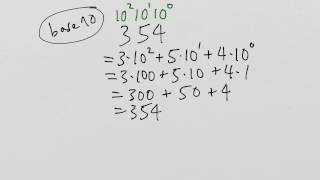 base 10
10² 10¹ 10⁰
354
= 3·10² + 5·10¹ + 4·10⁰
= 3·100 + 5·10 + 4·1
= 300 + 50 + 4
= 354